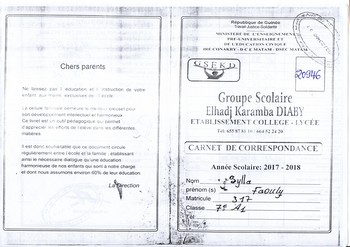 Chers parents
Ne laissez pas l'éducation et l'instruction de votre
enfant aux mains exclusives de l'école.
développement intellectuel et harmonieux
Ce livret est un outil pédagogique qui permet
d'apprécier les efforts de l'élève dans les différentes
matières.
Il est donc souhaitable que ce document circule
régulièrement entre l'école et la famille établissant
ainsi le nécessaire dialogue qu'une éducation
harmonieuse de nos enfants qui sont à notre charge
et dont nous assumons environ 60% de leur éducation.
La Direction
République de Guinée
Travail-Justice-Solidarité
MINISTERE DE L'ENSEIGNEMENT
PRE-UNIVERSITAIRE ET
DE L'EDUCATION CIVIQUE
DE CONAKRY - DCE MATAM - DSEC MATAM
GSEKD
20946
Groupe Scolaire
Elhadj Karamba DIABY
ETABLISSEMENT COLLEGE - LYCÉE
CARNET DE CORRESPONDANCE
Année Scolaire: 2017 - 2018
Nom Sylla
prénom (s) Faouly
Matricule 317
Classe 7e A1
Tél